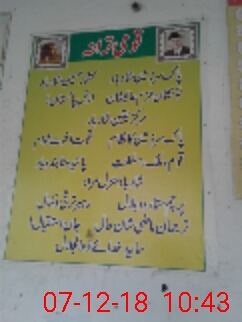 قومی ترانہ
پاک سرزمین شاد باد کشور حسین شاد باد
تو نشان عزم عالی شان ارض پاکستان
مرکز یقین شاد باد
پاک سرزمین کا نظام قوت اخوت عوام
قوم ملک سلطنت پائندہ تابندہ باد
شاد باد منزل مراد
پرچم ستارہ و ہلال رہبر ترقی و کمال
ترجمان ماضی شان حال جان استقبال
سایہ خدائے ذوالجلال
07-12-18 10:43